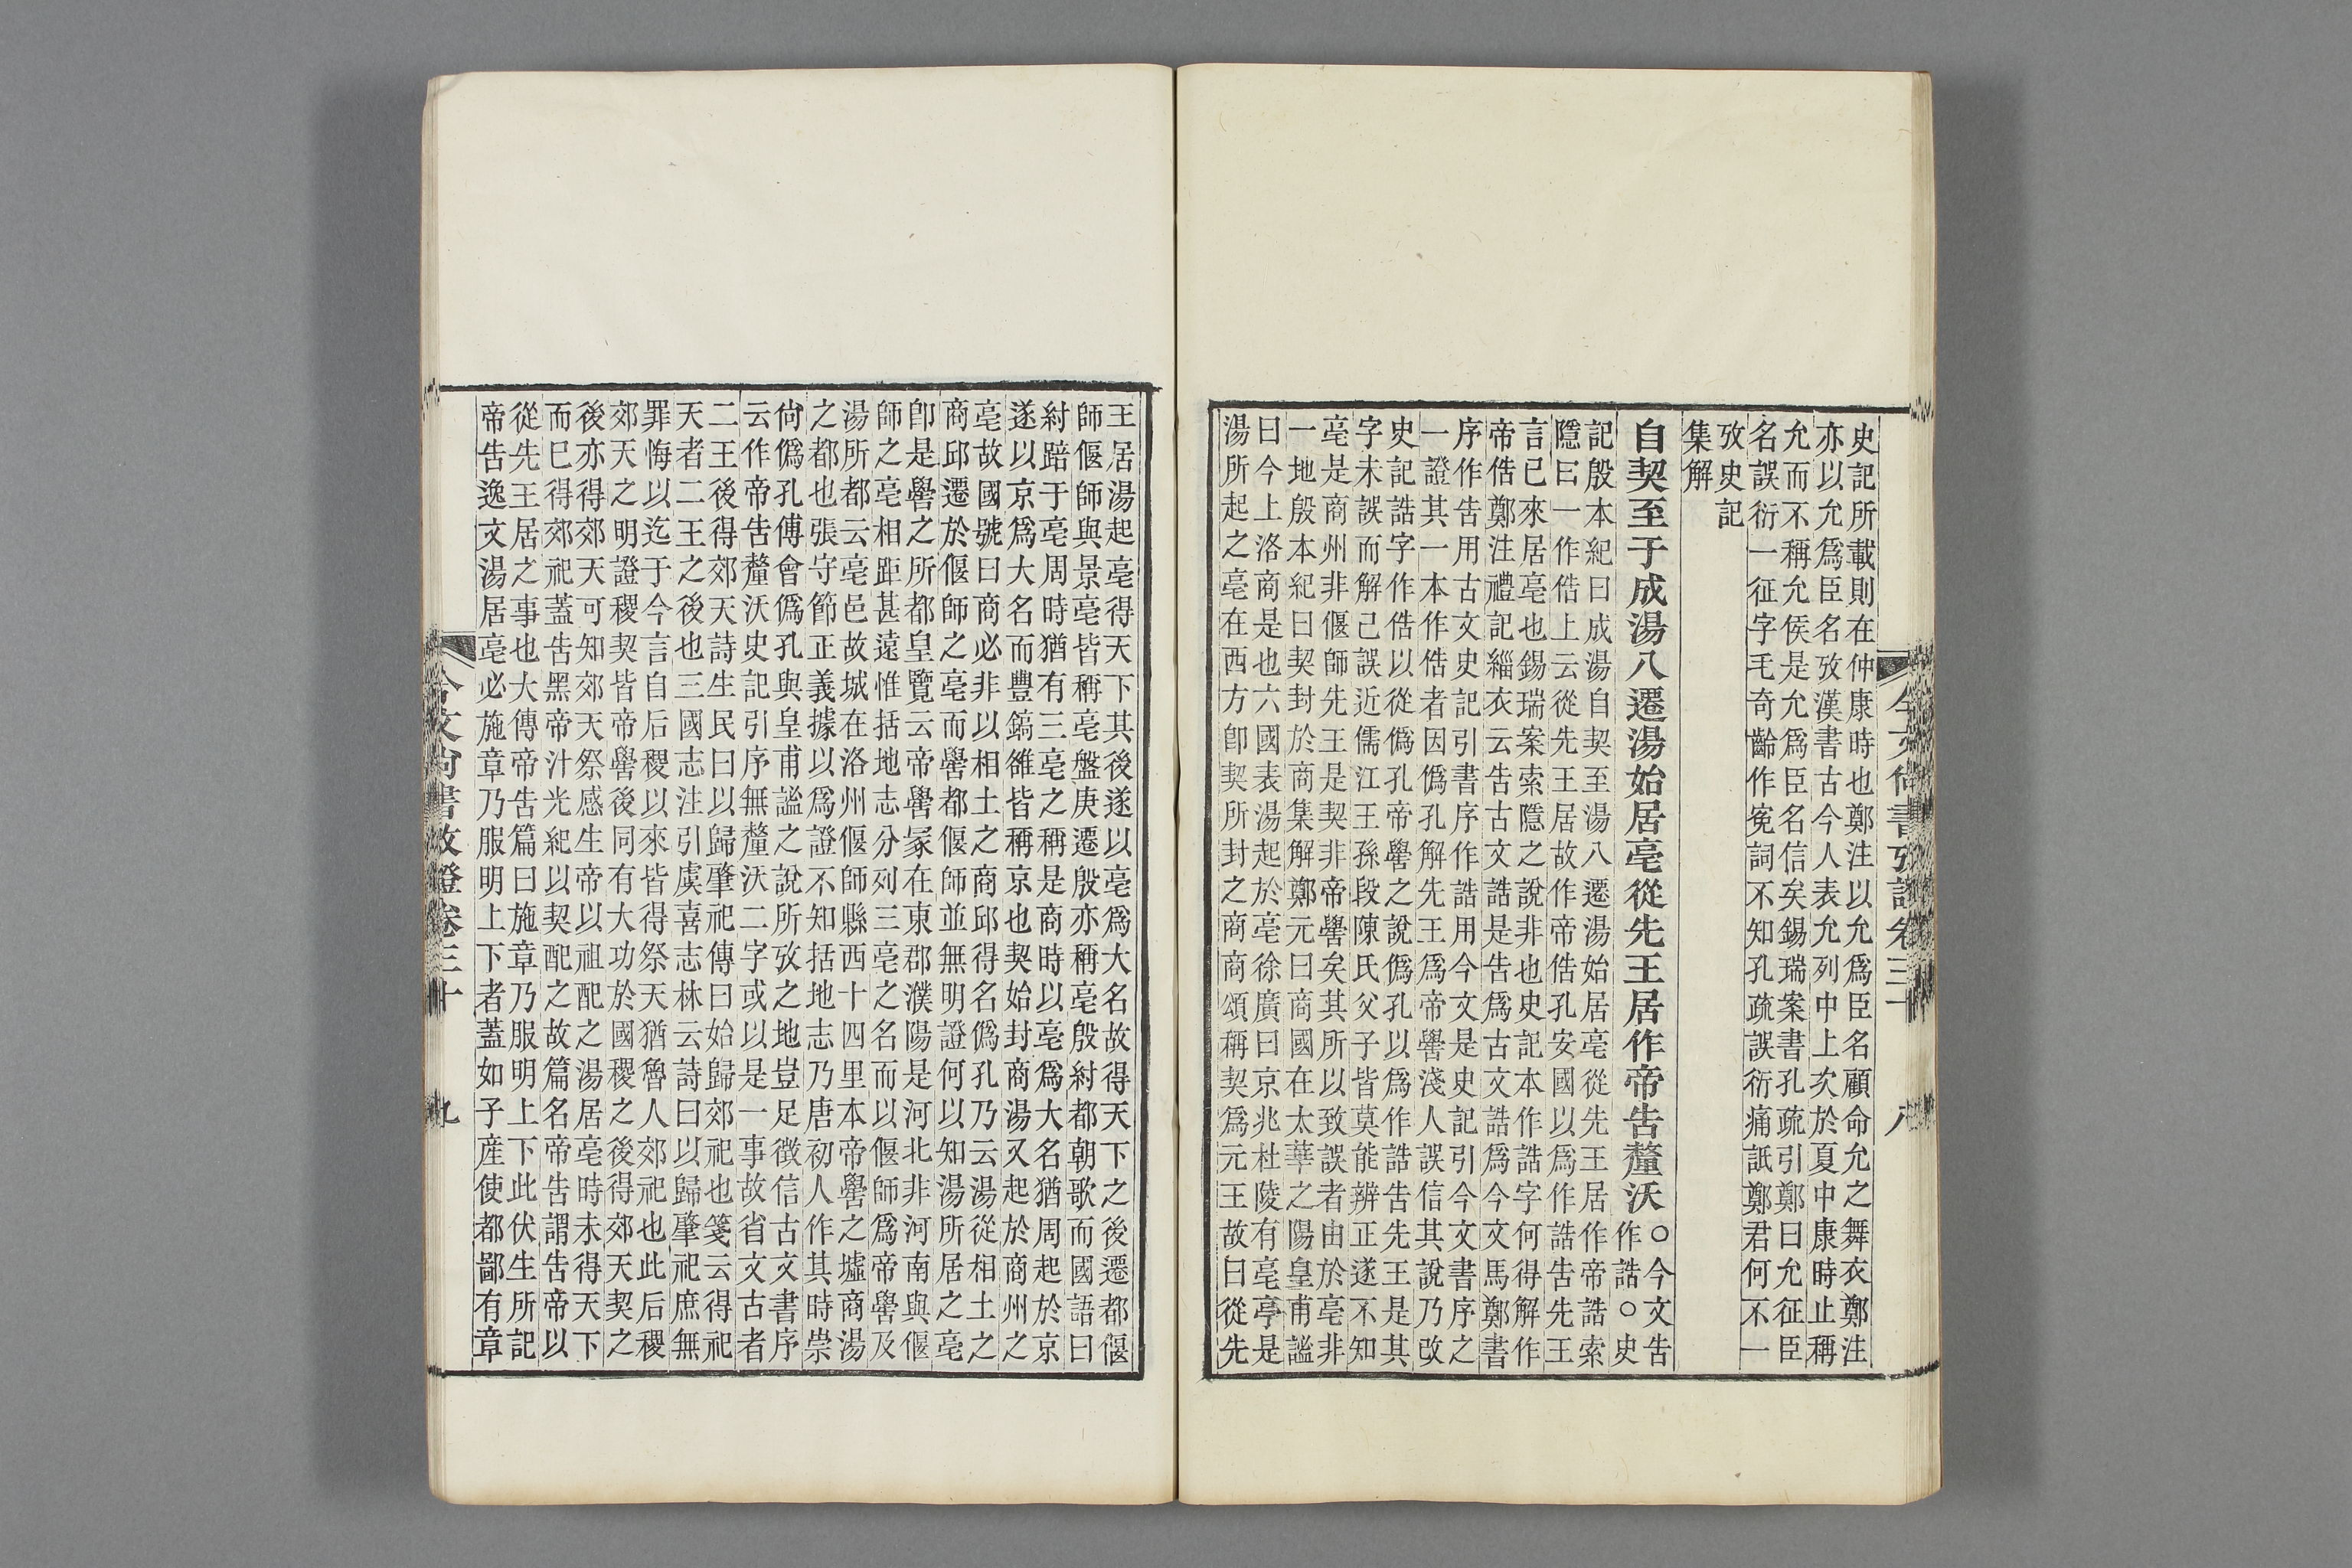 史記所載則在仲康時也鄭注以允爲臣名顧命允之舞衣鄭注
亦以允爲臣名攷漢書古今人表允列中上次於夏中康時止稱
允而不稱允侯是允爲臣名信矣錫瑞案書孔疏引鄭曰允征臣
名誤衍一征字毛奇齡作冤詞不知孔疏誤衍痛詆鄭君何不一
攷史記
集解
自契至于成湯八遷湯始居亳從先王居作帝告釐沃
○今文告
作誥○史
記殷本紀曰成湯自契至湯八遷湯始居亳從先王居作帝誥索
隱曰一作俈上云從先王居故作帝俈孔安國以爲作誥告先王
言已來居亳也錫瑞案索隱之說非也史記本作誥字何得解作
帝俈鄭注禮記緇衣云告古文誥是告爲古文誥爲今文馬鄭書
序作告用古文史記引書序作誥用今文是史記引今文書序之
一證其一本作俈者因僞孔解先王爲帝嚳淺人誤信其說乃改
史記誥字作俈以從僞孔帝嚳之說僞孔以爲作誥告先王是其
字未誤而解己誤近儒江王孫段陳氏父子皆莫能辨正遂不知
亳是商州非偃師先王是契非帝嚳矣其所以致誤者由於亳非
一地殷本紀曰契封於商集解鄭元曰商國在太華之陽皇甫謐
曰今上洛商是也六國表湯起於亳徐廣曰京兆杜陵有亳亭是
湯所起之亳在西方卽契所封之商商頌稱契爲元王故曰從先
今文尙書攷證卷三十
八
王居湯起亳得天下其後遂以亳爲大名故得天下之後遷都偃
師偃師與景亳皆稱亳盤庚遷殷亦稱亳殷紂都朝歌而國語曰
紂踣于亳周時猶有三亳之稱是商時以亳爲大名猶周起於京
遂以京爲大名而豐鎬雒皆稱京也契始封商湯又起於商州之
亳故國號曰商必非以相土之商邱得名僞孔乃云湯從相土之
商邱遷於偃師之亳而嚳都偃師並無明證何以知湯所居之亳
卽是嚳之所都皇覽云帝嚳冢在東郡濮陽是河北非河南與偃
師之亳相距甚遠惟括地志分列三亳之名而以偃師爲帝嚳及
湯所都云亳邑故城在洛州偃師縣西十四里本帝嚳之墟商湯
之都也張守節正義據以爲證不知括地志乃唐初人作其時崇
尙僞孔傅會僞孔與皇甫謐之說所攷之地豈足徵信古文書序
云作帝告釐沃史記引序無釐沃二字或以是一事故省文古者
二王後得郊天詩生民曰以歸肇祀傳曰始歸郊祀也箋云得祀
天者二王之後也三國志注引虞喜志林云詩曰以歸肇祀庶無
罪悔以迄于今言自后稷以來皆得祭天猶魯人郊祀也此后稷
郊天之明證稷契皆帝嚳後同有大功於國稷之後得郊天契之
後亦得郊天可知郊天祭感生帝以祖配之湯居亳時未得天下
而巳得郊祀蓋告黑帝汁光紀以契配之故篇名帝告謂告帝以
從先王居之事也大傳帝告篇曰施章乃服明上下此伏生所記
帝告逸文湯居亳必施章乃服明上下者蓋如子産使都鄙有章
今文尙書攷證卷三十
九